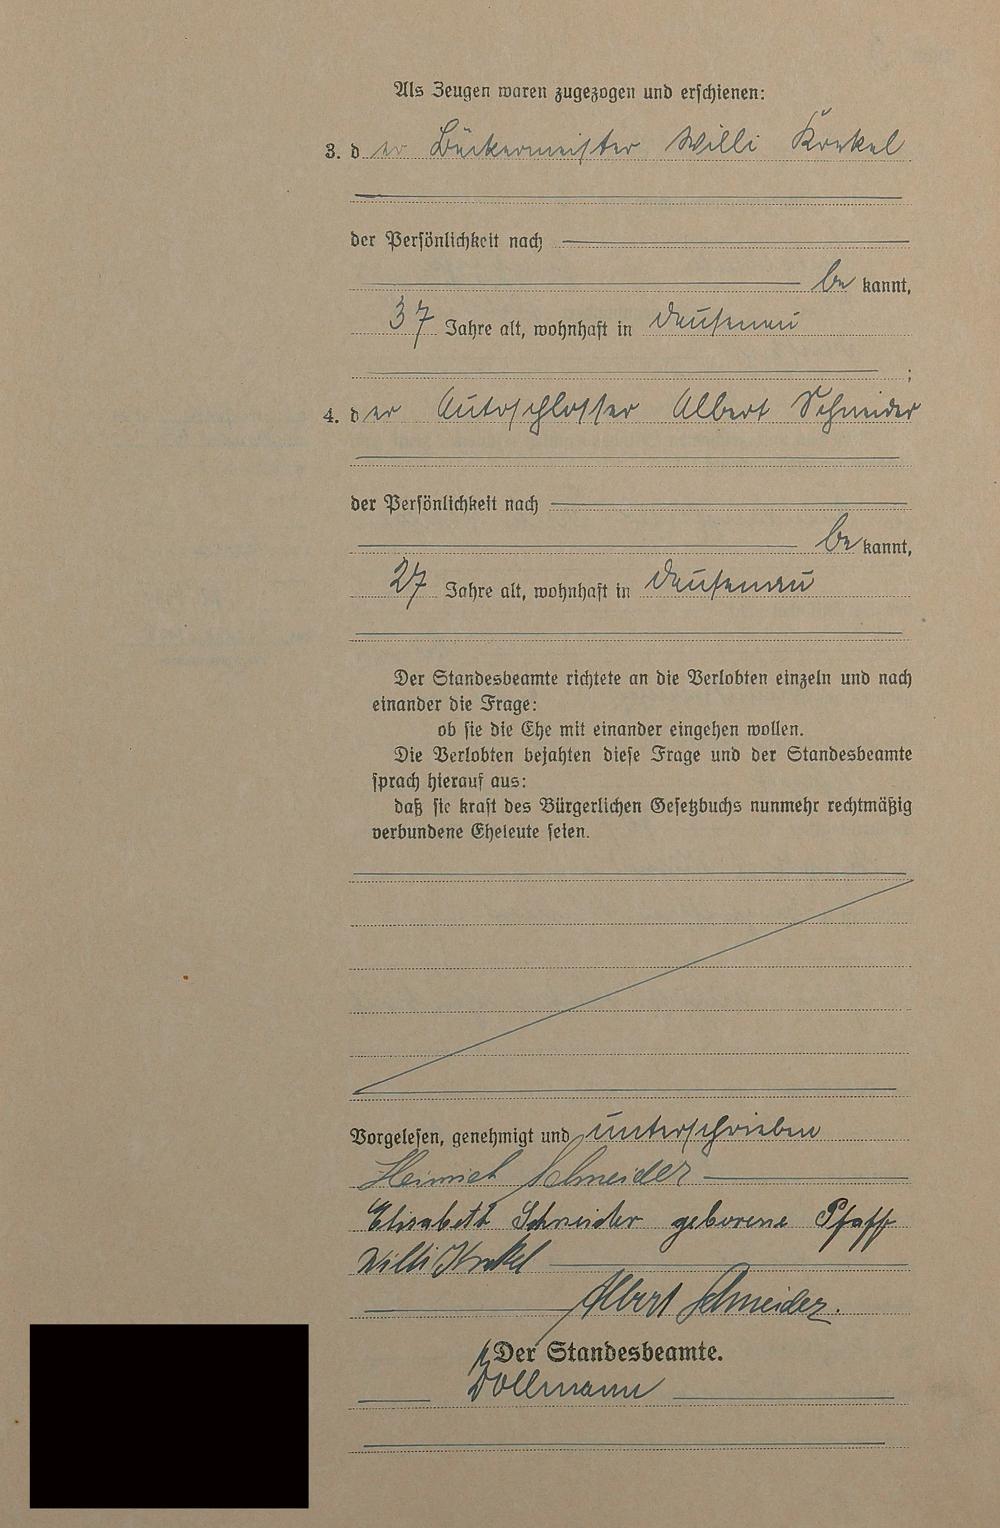 Als Zeugen waren zugezogen und erschienen:
3. der Bäckermeister Willi
der Persönlichkeit nach
be kannt,
37 Jahre alt, wohnhaft in Dausenau
;
4. der Autoschlosser Albert Schneider
der Persönlichkeit nach
be kannt,
27 Jahre alt, wohnhaft in Dausenau
Der Standesbeamte richtete an die Verlobten einzeln und nach
einander die Frage:
ob sie die Ehe mit einander eingehen wollen.
Die Verlobten bejahten diese Frage und der Standesbeamte
sprach hierauf aus:
daß sie kraft des Bürgerlichen Gesetzbuchs nunmehr rechtmäßig
verbundene Eheleute seien.
Vorgelesen, genehmigt und unterschrieben
Heinrich Schneider
Elisabeth Schneider geborene Pfaff
Willi
Albert Schneider.
Der Standesbeamte.
Dollmann